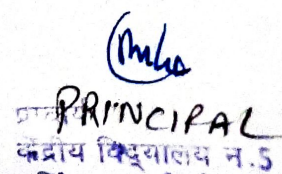 PRINCIPAL
प्राचार्य
केंद्रीय विद्यालय न.5